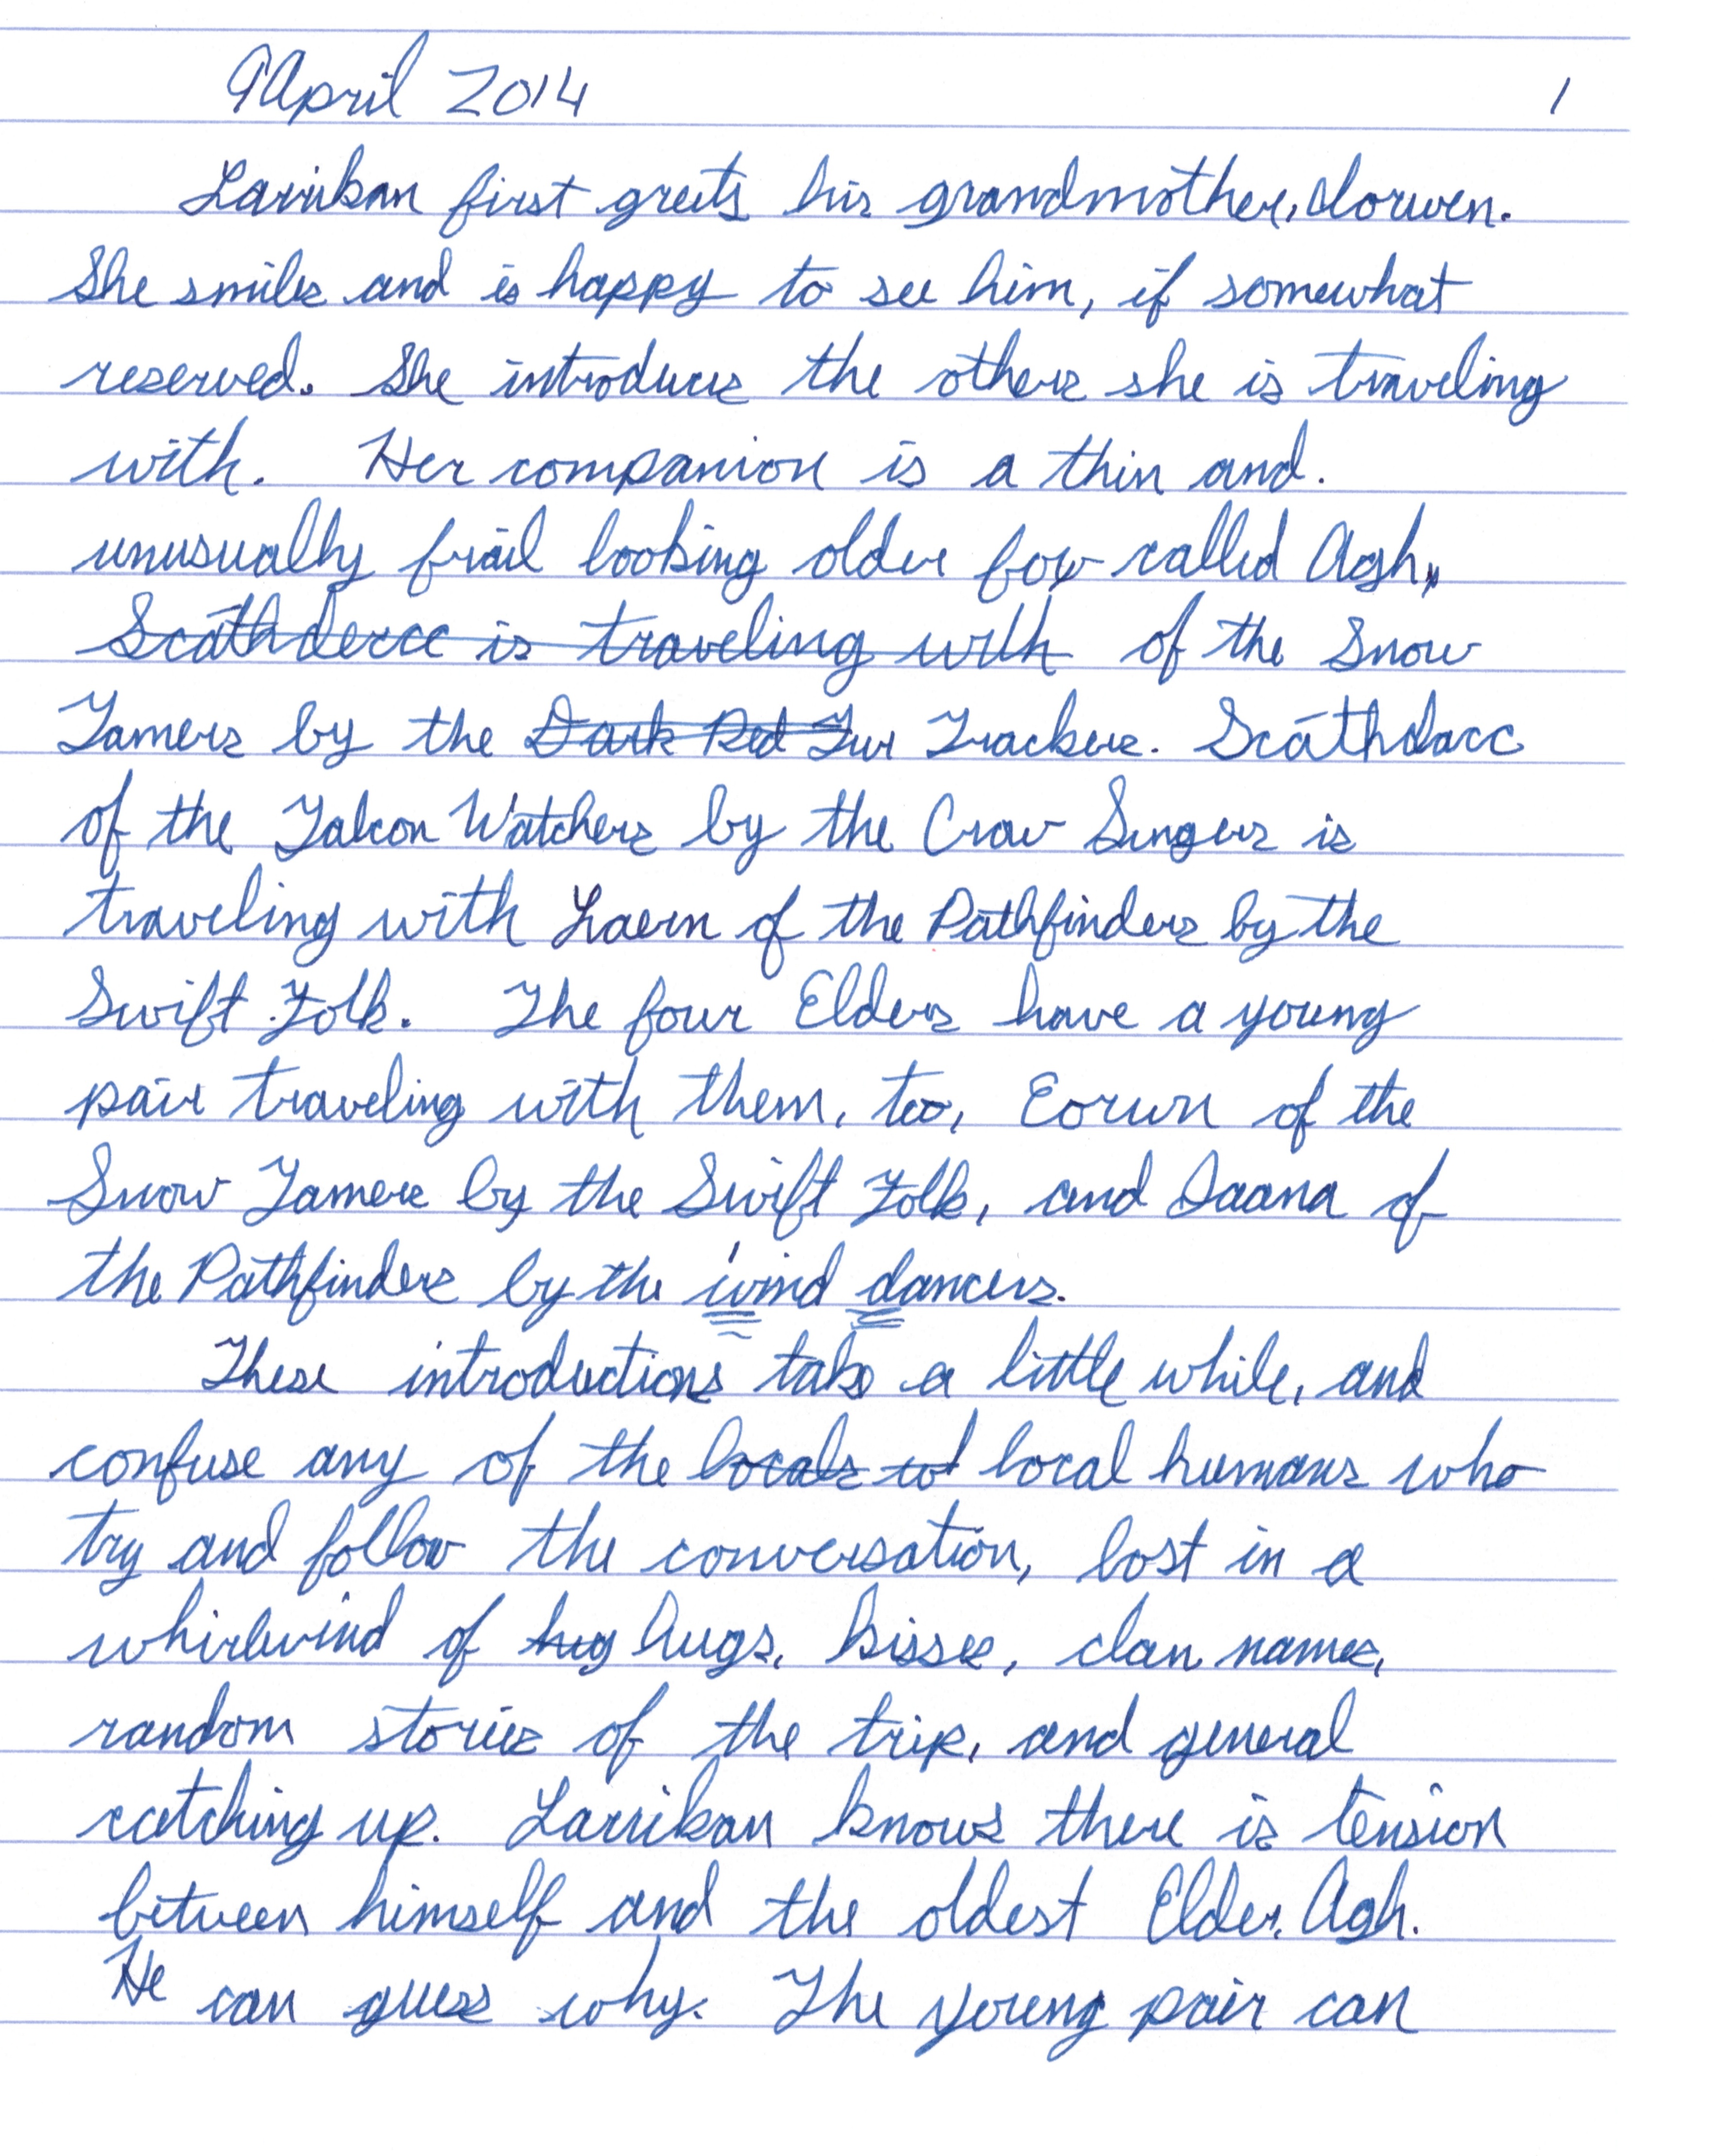 9 April 2014 1
Larrikan first greets his grandmother, Clorwen.
She smiles and is happy to see him, if somewhat
reserved. She introduces the others she is traveling
with. Her companion is a thin and.
unusually frail looking older fow called Agh,
Scáthdercc is traveling with of the Snow
Tamers by the Dark Red Fur Trackers. Scáthdarc
of the Falcon Watchers by the Crow Singers is
traveling with Laern of the Pathfinders by the
Swift Folk. The four Elders have a young
pair traveling with them, too, Eorwn of the
Snow Tamers by the Swift Folk, and Daana of
the Pathfinders by the wind dancers.
These introductions take a little while, and
confuse any of the locals wh local humans who
try and follow the conversation, lost in a
whirlwind of hug hugs, kisses, clan names,
random stories of the trip, and general
catching up. Larrikan knows there is tension
between himself and the oldest Elder, Agh.
He can guess why. The young pair can